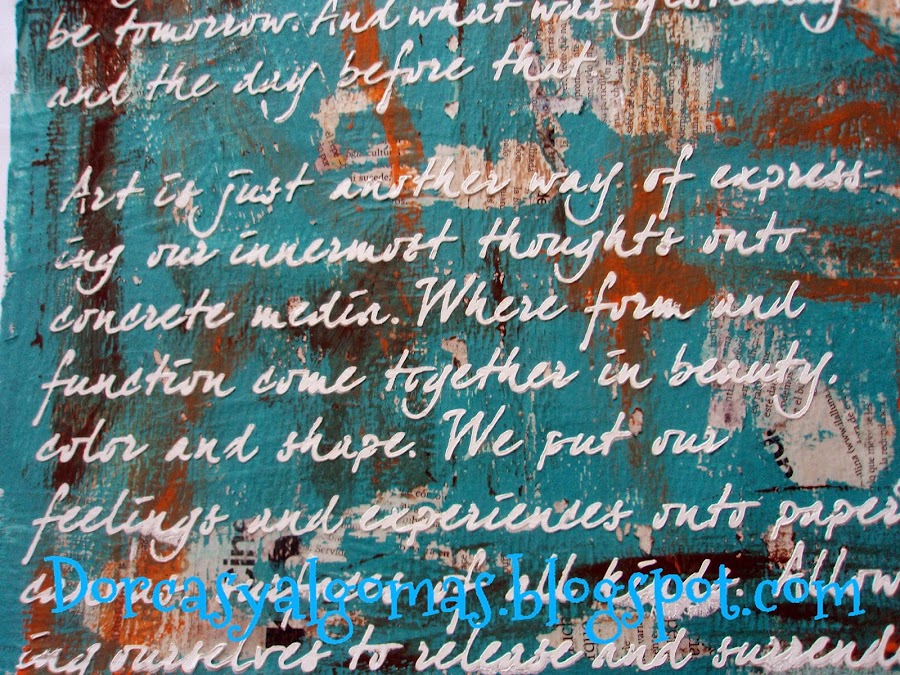 be tomorrow. And what was yesterday
and the day before that.
Art is just another way of express-
ing our innermost thoughts onto
concrete media. Where form and
function come together in beauty,
color and shape. We put our
feelings and experiences onto paper
of all kinds. Allow
Dorcasyalgomas.blogspot.com
ing ourselves to release and surrend